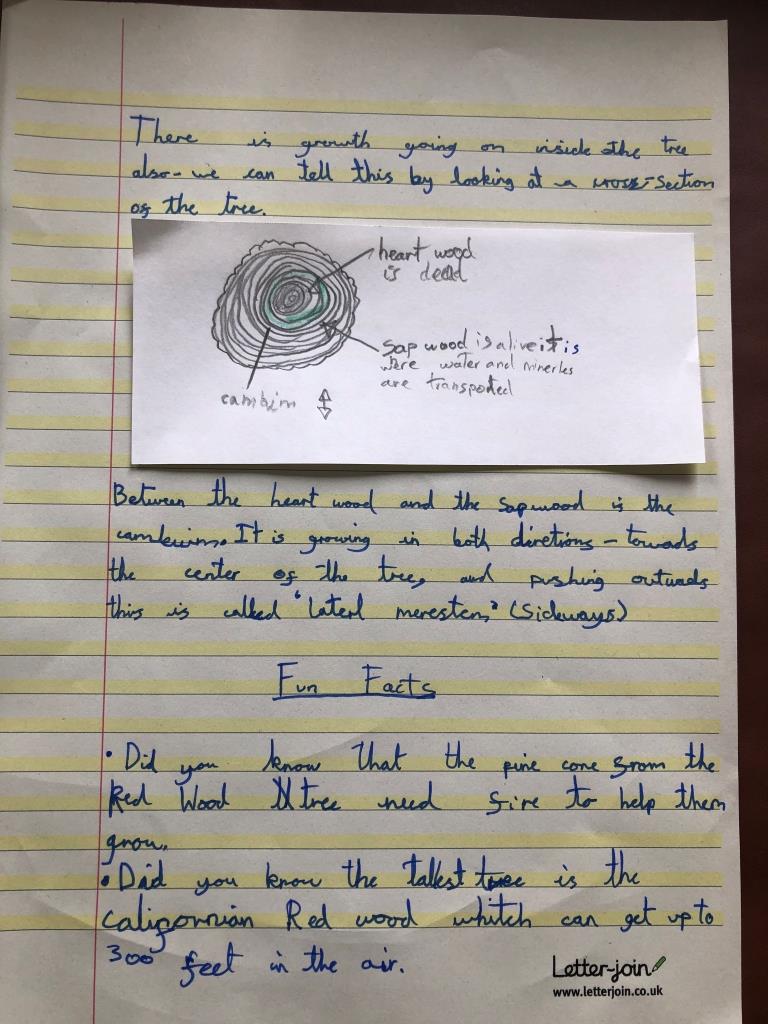 There is growth going on inside the tree
also - we can tell this by looking at a cross-section
of the tree.
heart wood
is dead
sap wood is alive it is
were water and minerles
are transpoted
cambim
Between the heart wood and the sapwood is the
cambium. It is growing in both diretions - towads
the center of the tree, and pushing outwads
this is called "laterl meresten" (Sideways)
Fun Facts
• Did you know that the pine cone from the
Red Wood tree need fire to help them
grow.
• Did you know the tallest tree is the
califonian Red wood whitch can get up to
300 feet in the air.
Letter-join
www.letterjoin.co.uk